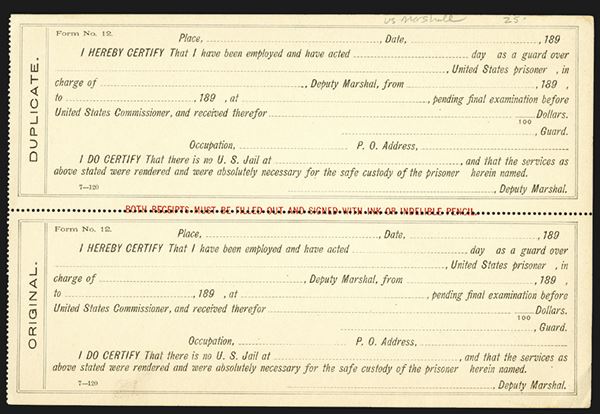 us Marshall 25-
DUPLICATE.
Form No. 12.
Place, , Date, , 189
I HEREBY CERTIFY That I have been employed and have acted day as a guard over
, United States prisoner , in
charge of , Deputy Marshal, from , 189 ,
to , 189 , at , pending final examination before
United States Commissioner, and received therefor Dollars.
100
, Guard.
Occupation, P. O. Address,
I DO CERTIFY That there is no U. S. Jail at , and that the services as
above stated were rendered and were absolutely necessary for the safe custody of the prisoner herein named.
7—120
, Deputy Marshal.
BOTH RECEIPTS MUST BE FILLED OUT AND SIGNED WITH INK OR INDELIBLE PENCIL.
ORIGINAL.
Form No. 12.
Place, , Date, , 189
I HEREBY CERTIFY That I have been employed and have acted day as a guard over
, United States prisoner , in
charge of , Deputy Marshal, from , 189 ,
to , 189 , at , pending final examination before
United States Commissioner, and received therefor Dollars.
100
, Guard.
Occupation, P. O. Address,
I DO CERTIFY That there is no U. S. Jail at , and that the services as
above stated were rendered and were absolutely necessary for the safe custody of the prisoner herein named.
7—120
, Deputy Marshal.